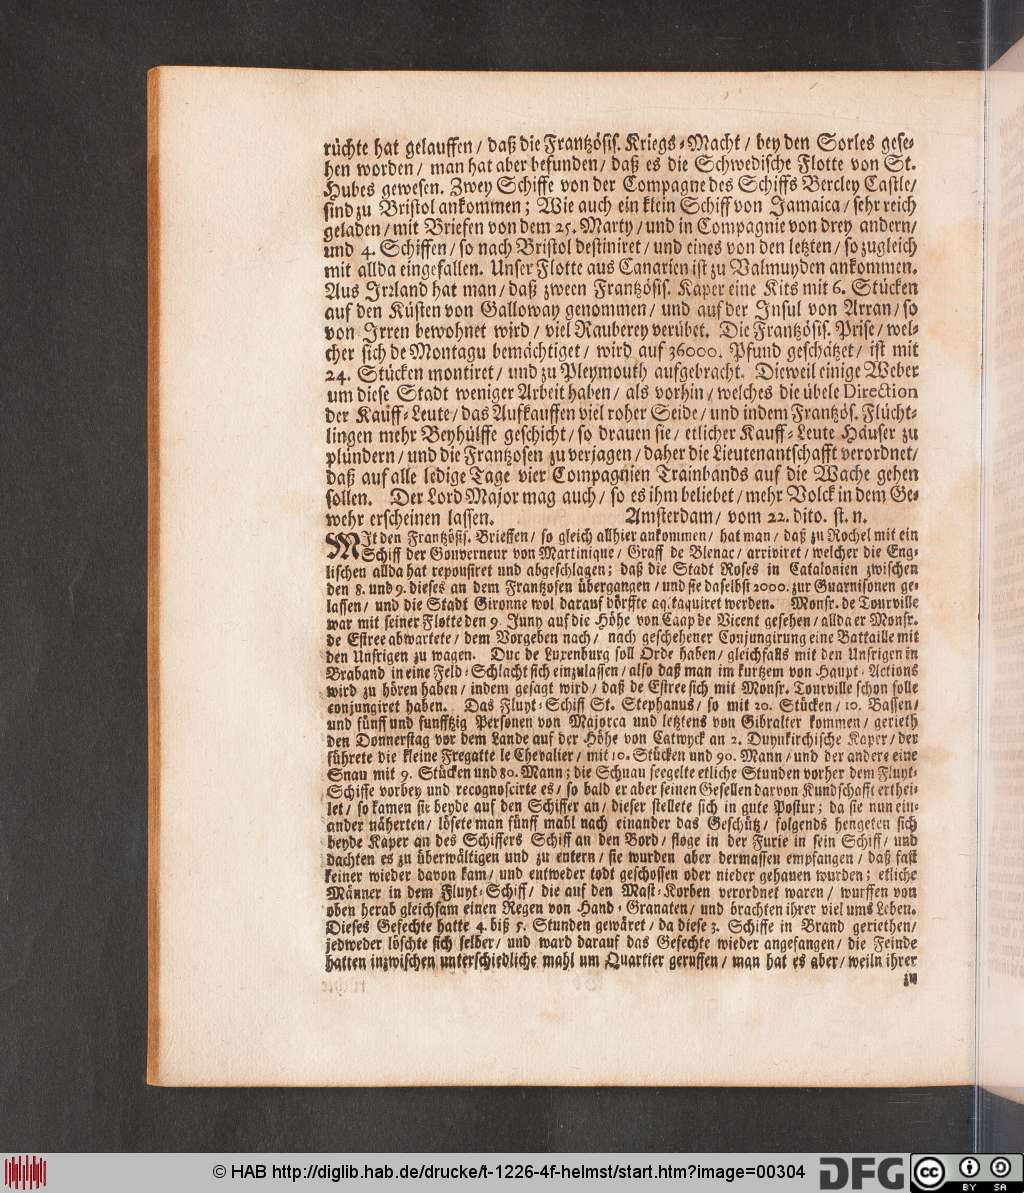 rüchte hat gelauffen / daß die Frantzösis. Kriegs-Macht / bey den Sorles gese-
hen worden / man hat aber befunden / daß es die Schwedische Flotte von St.
Hubes gewesen. Zwey Schiffe von der Compagne des Schiffs Bercley Castle /
sind zu Bristol ankommen; Wie auch ein klein Schiff von Jamaica / sehr reich
geladen / mit Briefen von dem 25. Marty / und in Compagnie von drey andern /
und 4. Schiffen / so nach Bristol destiniret / und eines von den letzten / so zugleich
mit allda eingefallen. Unser Flotte aus Canarien ist zu Valmuyden ankommen.
Aus Irrland hat man / daß zween Frantzösis. Kaper eine Kits mit 6. Stücken
auf den Küsten von Galloway genommen / und auf der Insul von Arran / so
von Irren bewohnet wird / viel Rauberey verübet. Die Frantzösis. Prise / wel-
cher sich de Montagu bemächtiget / wird auf 36000. Pfund geschätzet / ist mit
24. Stücken montiret / und zu Pleymouth aufgebracht. Dieweil einige Weber
um diese Stadt weniger Arbeit haben / als vorhin / welches die übele Direction
der Kauff-Leute / das Aufkauffen viel roher Seide / und indem Frantzös. Flücht-
lingen mehr Beyhülffe geschicht / so drauen sie / etlicher Kauff-Leute Häuser zu
plündern / und die Frantzosen zu verjagen / daher die Lieutenantschafft verordnet /
daß auf alle ledige Tage vier Compagnien Trainbands auf die Wache gehen
sollen. Der Lord Major mag auch / so es ihm beliebet / mehr Volck in dem Ge-
wehr erscheinen lassen. Amsterdam / vom 22. dito. st. n.
MIt den Frantzösis. Brieffen / so gleich allhier ankommen / hat man / daß zu Rochel mit ein
Schiff der Gouverneur von Martinique / Graff de Blenac / arriviret / welcher die Eng-
lischen allda hat repousiret und abgeschlagen; daß die Stadt Roses in Catalonien zwischen
den 8. und 9. dieses an dem Frantzosen übergangen / und sie daselbst 2000. zur Guarnisonen ge-
lassen / und die Stadt Gironne wol darauf dörffte aq.taquiret werden. Monsr. de Tourville
war mit seiner Flotte den 9. Juny auf die Höhe von Caap de Vicent gesehen / allda er Monsr.
de Estree abwartete / dem Vorgeben nach / nach geschehener Conjungirung eine Battaille mit
den Unsrigen zu wagen. Duc de Luxenburg soll Orde haben / gleichfalls mit den Unsrigen in
Braband in eine Feld-Schlacht sich einzulassen / also daß man im kurtzem von Haupt-Actions
wird zu hören haben / indem gesagt wird / daß de Estree sich mit Monsr. Tourville schon solle
conjungiret haben. Das Fluyt-Schiff St. Stephanus / so mit 20. Stücken / 10. Bassen /
und fünff und funfftzig Personen von Majorca und letztens von Gibralter kommen / gerieth
den Donnerstag vor dem Lande auf der Höhe von Catwyck an 2. Duynkirchische Kaper / der
führete die kleine Fregatte le Chevalier / mit 10. Stücken und 90. Mann / und der andere eine
Snau mit 9. Stücken und 80. Mann; die Schnau seegelte etliche Stunden vorher dem Fluyt-
Schiffe vorbey und recognoscirte es / so bald er aber seinen Gesellen darvon Kundschafft erthei-
let / so kamen sie beyde auf den Schiffer an / dieser stellete sich in gute Postur; da sie nun ein-
ander näherten / lösete man fünff mahl nach einander das Geschütz / folgends hengeten sich
beyde Kaper an des Schiffers Schiff an den Bord / floge in der Furie in sein Schiff / und
dachten es zu überwältigen und zu entern / sie wurden aber dermassen empfangen / daß fast
keiner wieder davon kam / und entweder todt geschossen oder nieder gehauen wurden; etliche
Männer in dem Fluyt-Schiff / die auf den Mast-Korben verordnet waren / wurffen von
oben herab gleichsam einen Regen von Hand-Granaten / und brachten ihrer viel ums Leben.
Dieses Gefechte hatte 4. biß 5. Stunden gewäret / da diese 3. Schiffe in Brand geriethen /
jedweder löschte sich selber / und ward darauf das Gefechte wieder angefangen / die Feinde
hatten inzwischen unterschiedliche mahl um Quartier geruffen / man hat es aber / weiln ihrer
zu
© HAB http://diglib.hab.de/drucke/t-1226-4f-helmst/start.htm?image=00304
DFG
cc BY SA